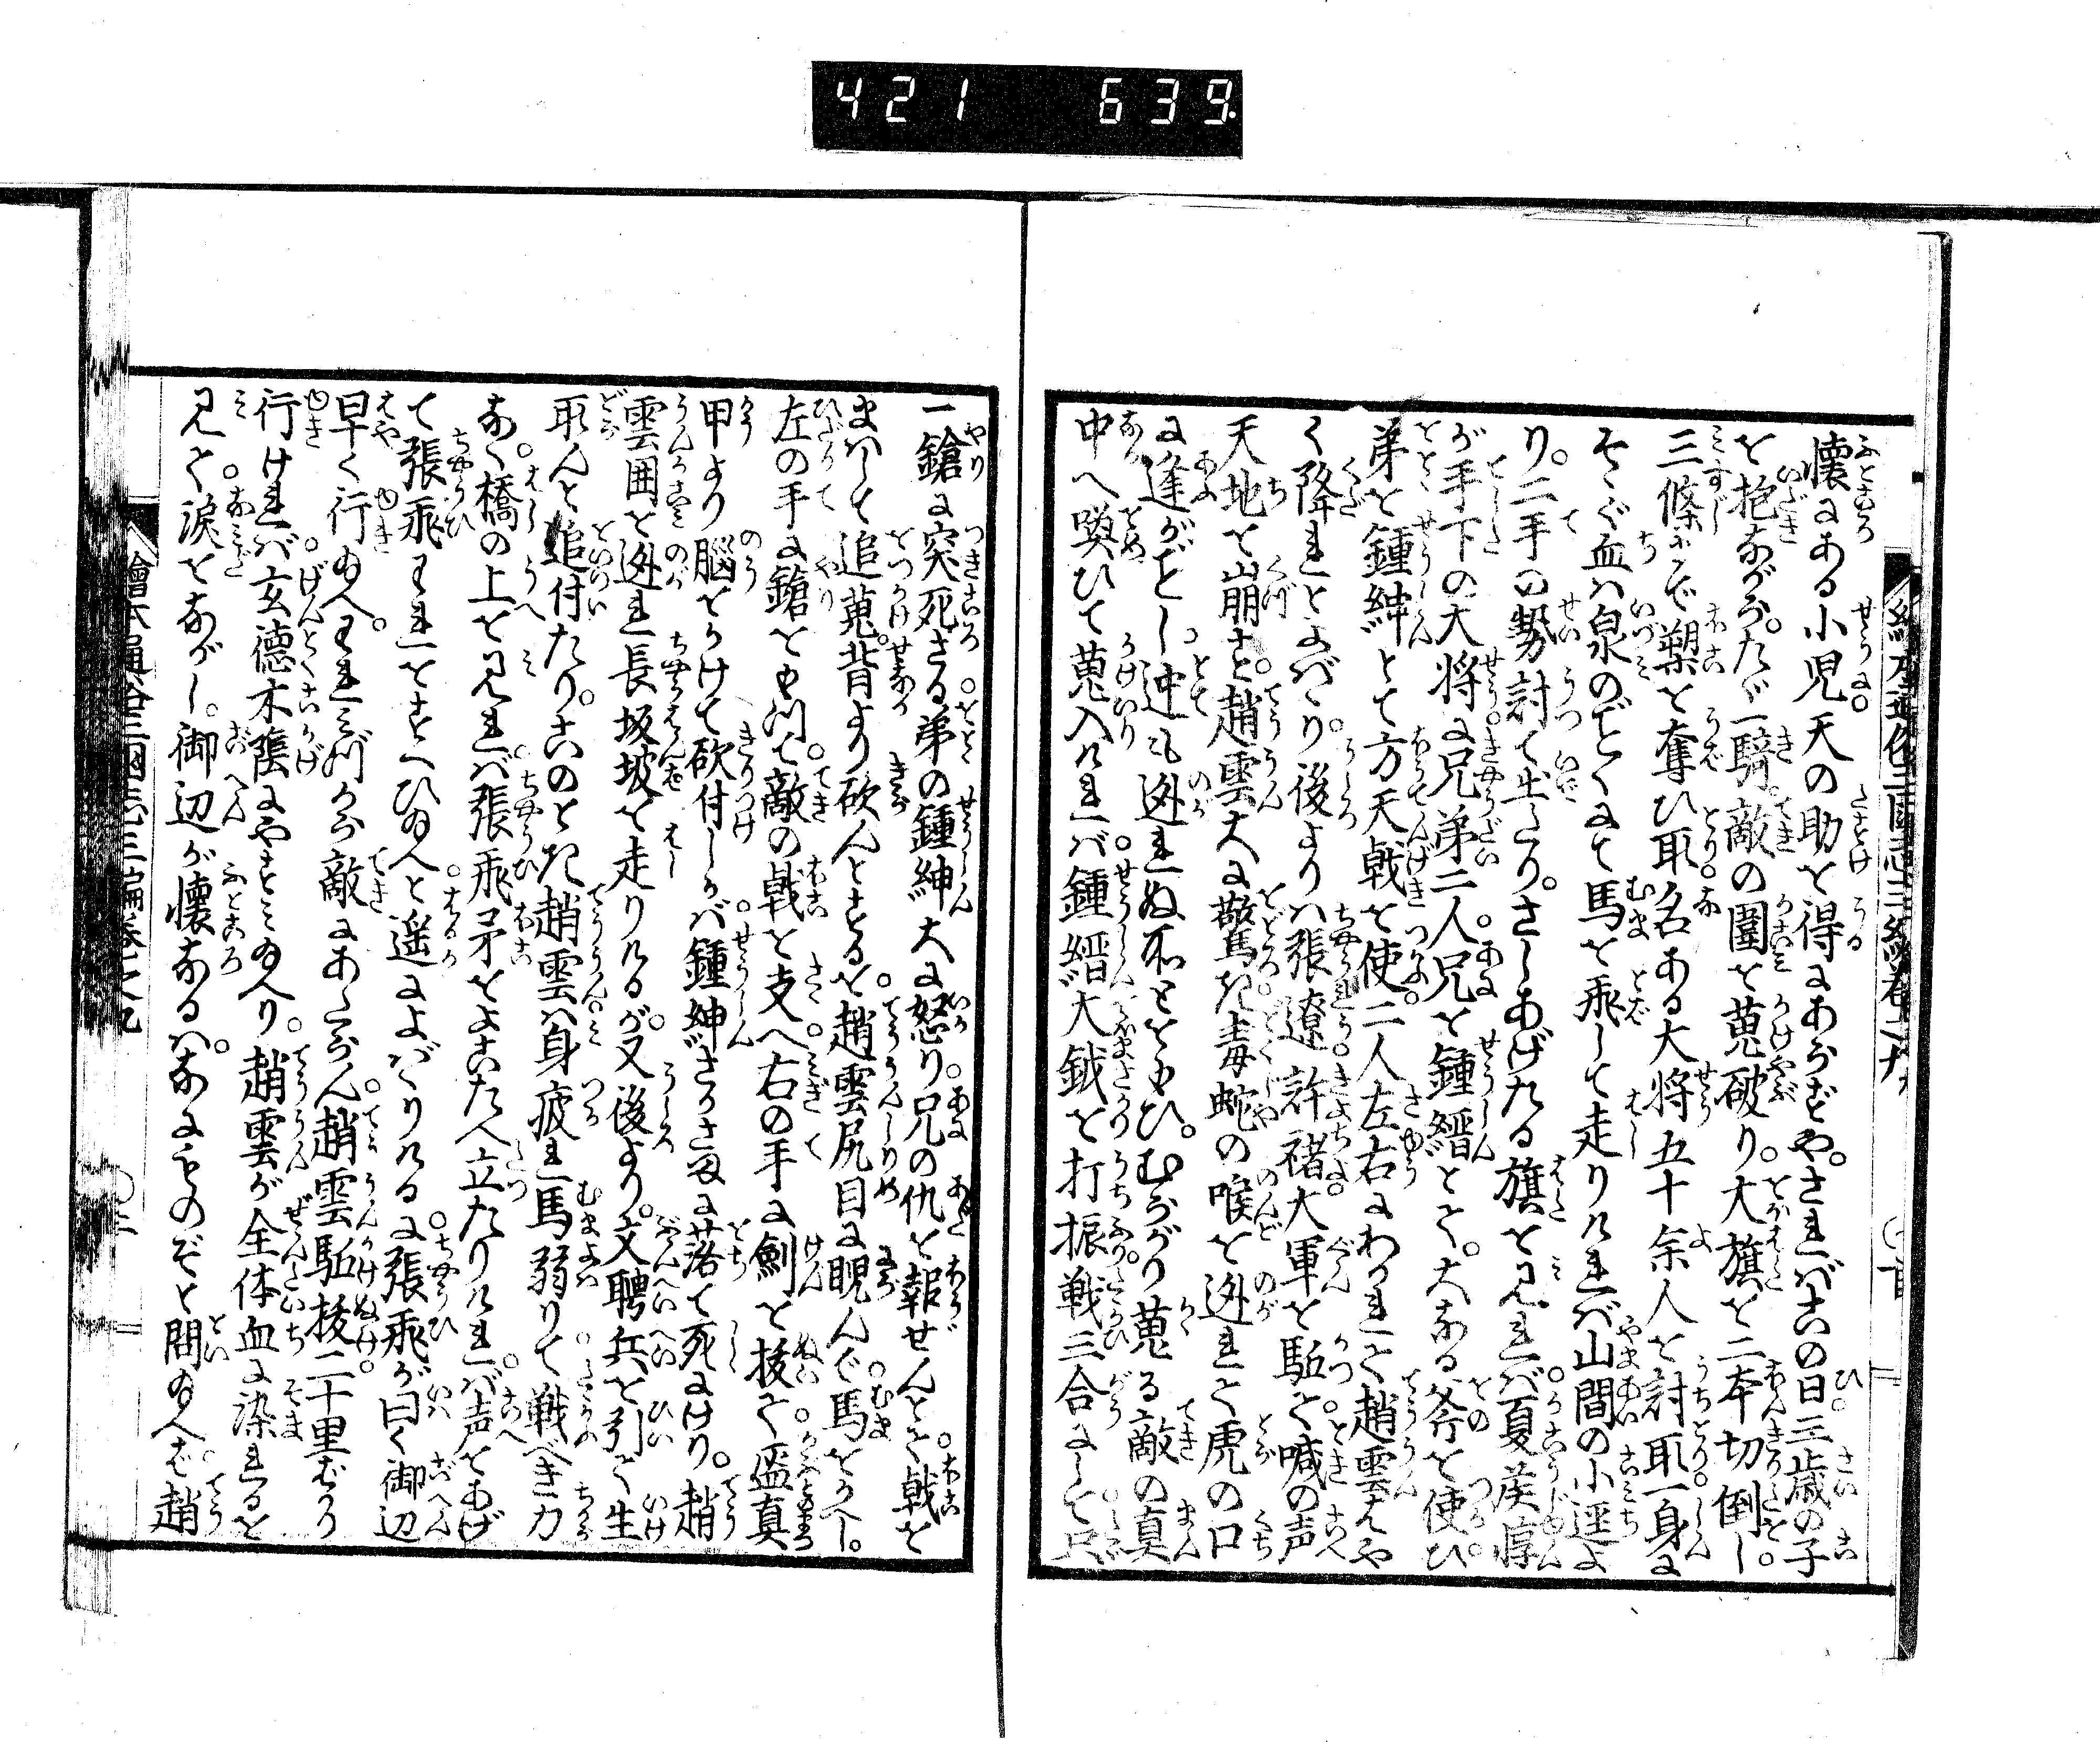 421 639.
懐にある小児天の助を得にあらずや。されバこの日三歳の子
を抱ながら。たゞ一騎。敵の圍を蒐破り。大旗を二本切倒し。
三條まで槊を奪ひ取。名ある大将五十余人を討取。一身に
そゝぐ血ハ泉のごとくにて馬を飛して走りけれバ山間の小逕よ
り。二手の勢討て出たり。さしあげたる旗を見れバ。夏侯惇
が手下の大将に兄弟二人。兄を鍾縉とて。大なる斧を使ひ。
弟を鍾紳とて方天戟を使。二人左右にわかれて趙雲はや
く降れとよばゝり。後よりハ張遼。許褚。大軍を駈て。喊の声
天地を崩さと。趙雲大に驚き。毒蛇の喉を迯れて虎の口
に逢がごとし。迚も迯れぬ所とをもひ。むらがり蒐る敵の真
中へ喚ひて蒐入けれバ。鍾縉大鉞を打振。戦三合にして只
一鎗に突死さる。弟の鍾紳大に怒り。兄の仇を報ぜんとて。戟を
まハして追蒐。背より砍んとするを。趙雲尻目に睨んで。馬をかへし。
左の手に鎗をもつて。敵の戟を支へ。右の手に劍を抜て。盔真
甲より脳をかけて砍付しかバ。鍾紳さかさまに落て死にけり。趙
雲囲を迯れ長坂坡を走りけるが。又後より。文聘兵を引て生
取んと追付たり。このとき趙雲ハ。身疲れ馬弱りて。戦べき力
なく。橋の上を見れバ。張飛矛をよこたへ立たりけれバ。声をあげ
て張飛われをすくひ給へと。遥によばゝりけるに。張飛が曰く御辺
早く行給へ。われミづから敵にあたらん。趙雲駈抜。二十里ばかり
行けれバ。玄徳木蔭にやすミ給へり。趙雲が全体血に染れるを
見て。涙をながし。御辺が懐なるハ。なにものぞと問給へば。趙